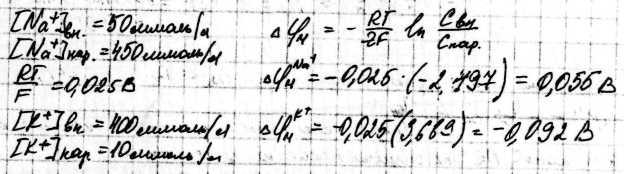 [Na⁺]вн. = 50 ммоль/л
[Na⁺]нар. = 450 ммоль/л
RT/F = 0,025 В
[K⁺]вн = 400 ммоль/л
[K⁺]нар = 10 ммоль/л
Δφм = - RT/ZF ln Cвн/Cнар.
Δφм^Na⁺ = -0,025 · (-2,197) = 0,055 В
Δφм^K⁺ = -0,025 (3,689) = -0,092 В